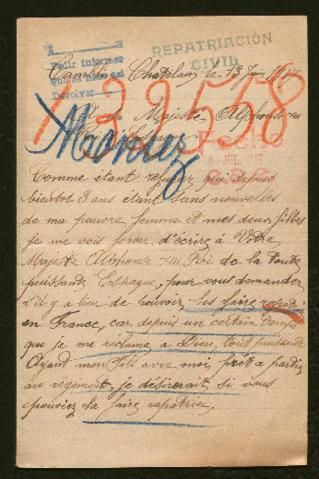 A
Pedir informes
Devolver
REPATRIACIÓN
CIVIL
le 13 Juin 1917
Sa Majesté Alphonse XIII
139558
Comme étant refugier depuis
bientot 3 ans étant sans nouvelles
de ma pauvre femme et mes deux filles
je me vois forcer d'écrire à Votre
Majesté Alphonse XIII Roi de la toute
puissante Espagne, pour vous demander
s'il y a lieu de pouvoir les faire
en France, car depuis un certain temps
que je me reclame a Dieu, tout puissant
Ayant mon fils avec moi, prêt a partir
au regiment, je désirerait si vous
pouviez la faire rapatrier.